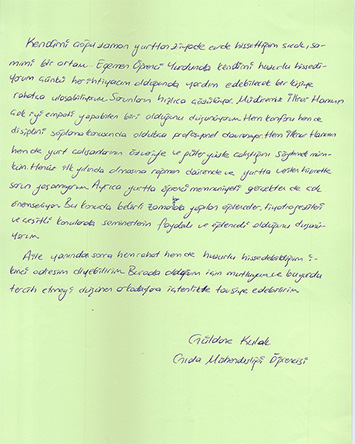 Kendimi çoğu zaman yurttan ziyade evde hissettiğim sıcak, sa-
mimi bir ortam. Egemen Öğrenci Yurdunda kendimi huzurlu hissedi-
yorum çünkü her ihtiyacım olduğunda yardım edebilecek bir kişiye
rahatça ulaşabiliyorum. Sorunlarım hızlıca çözülüyor. Müdiremiz İlknur Hanımın
çok iyi empati yapabilen biri olduğunu düşünüyorum. Hem konforu hem de
disiplini sağlama konusunda oldukça profesyonel davranıyor. Hem İlknur Hanımın
hem de yurt çalışanlarının özveriyle ve güler yüzle çalıştığını söylemek müm-
kün. Henüz ilk yılında olmasına rağmen dairemde ve yurtta verilen hizmette
sorun yaşamıyorum. Ayrıca yurtta öğrenci memnuniyeti gerçekten de çok
önemseniyor. Bu konuda belirli zamanlarda yapılan eğlenceler, tiyatro gezileri
ve çeşitli konularda seminerlerin faydalı ve eğlenceli olduğunu düşünü-
yorum.
Aile yanından sonra hem rahat hem de huzurlu hissedebildiğim i-
kinci adresim diyebilirim. Burada olduğum için mutluyum ve bu yurdu
tercih etmeyi düşünen arkadaşlara içtenlikle tavsiye edebilirim.
Güldane Kulak
Gıda Mühendisliği Öğrencisi